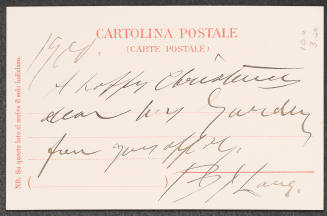 CARTOLINA POSTALE
(CARTE POSTALE)
A happy Christmas
dear Mrs Gardner
from yours affly.
NB. Su questo lato si scrive il solo indirizzo.